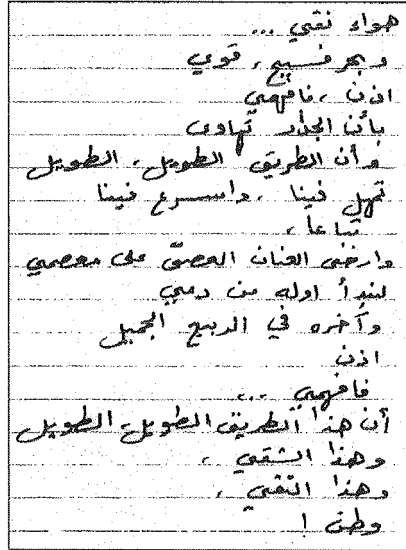 هواء نقي ...
وبحر فسيح، قوي
اذن، فافهمي
بأن الجدار تهاوى
وأن الطريق الطويل، الطويل
تمهل فينا، واسرع فينا
تباعا،
وارخى العنان العصيّ على معصمي
لنبدأ اوله من دمي
وآخره في الربيع الجميل
اذن
فافهمي ...
أن هذا الطريق الطويل، الطويل
وهذا الشقي،
وهذا النقي،
وطن !